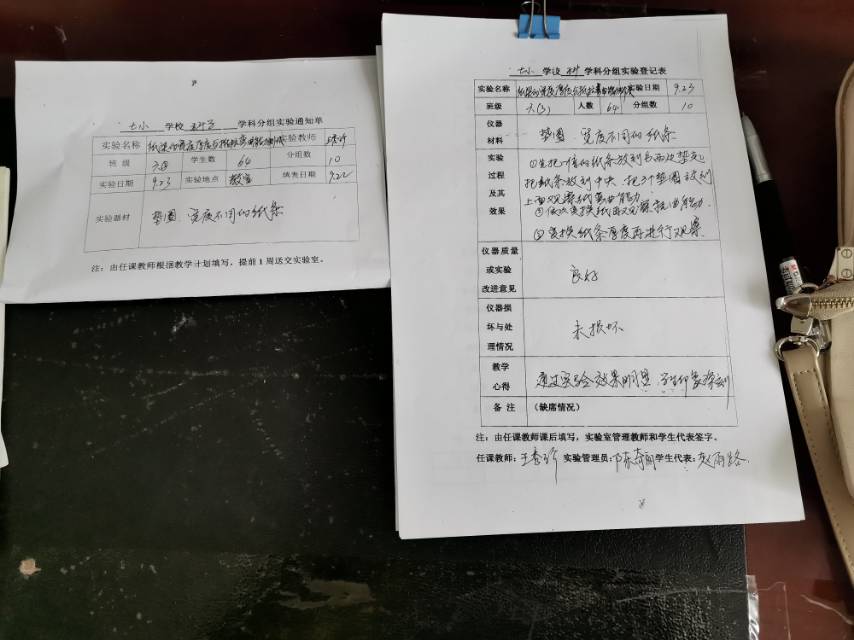 七小 学校 科学 学科分组实验通知单
实验名称 纸梁的宽度厚度与抵抗弯曲能力 实验教师
班级 学生数 64 分组数 10
实验日期 9.23 实验地点 教室 填表日期 9.22
实验器材 垫圈 宽度不同的纸条
注：由任课教师根据教学计划填写，提前1周送交实验室。
七小 学校 科学 学科分组实验登记表
实验名称 实验日期 9.23
班级 六(3) 人数 64 分组数 10
仪器材料 垫圈、宽度不同的纸条
实验过程及其效果 ①先把 的纸条放到书两边垫
把纸条放到中央 把3个垫圈放到
上面观察纸弯曲能力
②依次变换纸再观察 曲能力
③变换纸条厚度再进行观察
仪器质量或实验改进意见 良好
仪器损坏与处理情况 未损坏
教学心得 通过实验效果明显 学生印象深刻
备注 （缺席情况）
注：由任课教师课后填写，实验室管理教师和学生代表签字。
任课教师： 实验管理员： 学生代表：